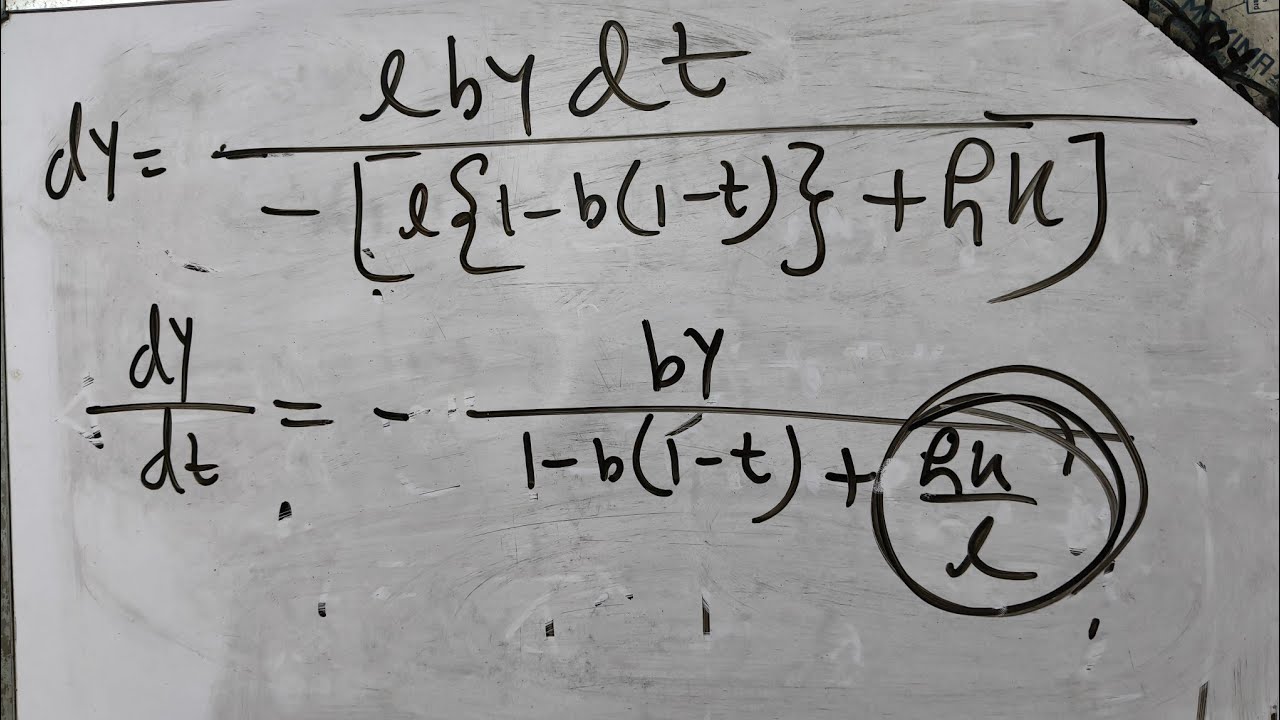 dY = lbYdt / -[l{1-b(1-t)} + hk]
dY/dt = - bY / 1-b(1-t) + hk/l